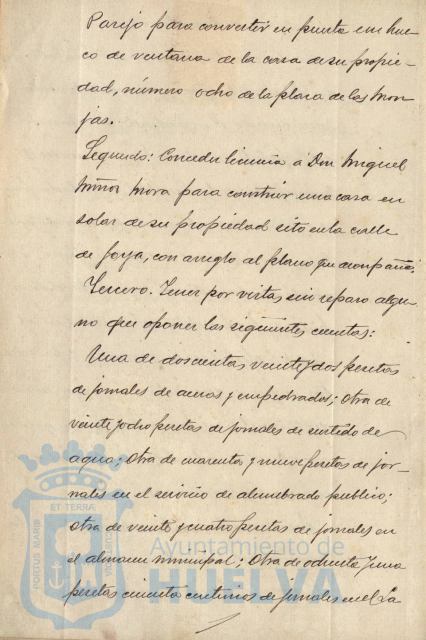 Parejo para convertir en puerta un hue-
co de ventana de la casa de su propie-
dad, número ocho de la plaza de las Mon-
jas.
Segundo: Conceder licencia á Don Miguel
Muñoz Mora para construir una casa en
solar de su propiedad sito en la calle
de Joya, con arreglo al plano que acompaña.
Tercero. Tener por vistas sin reparo algu-
no que oponer las siguientes cuentas:
Una de doscientas veinte y dos pesetas
de jornales de aceras y empedrados; otra de
veinte y ocho pesetas de jornales de surtido de
agua; otra de cuarenta y nueve pesetas de jor-
nales en el servicio de alumbrado publico;
otra de veinte y cuatro pesetas de jornales en
el almacen municipal; otra de ochenta y una
pesetas cincuenta centimos de jornales en el La
PORTUS MARIS ET TERRAE
Ayuntamiento de
HUELVA